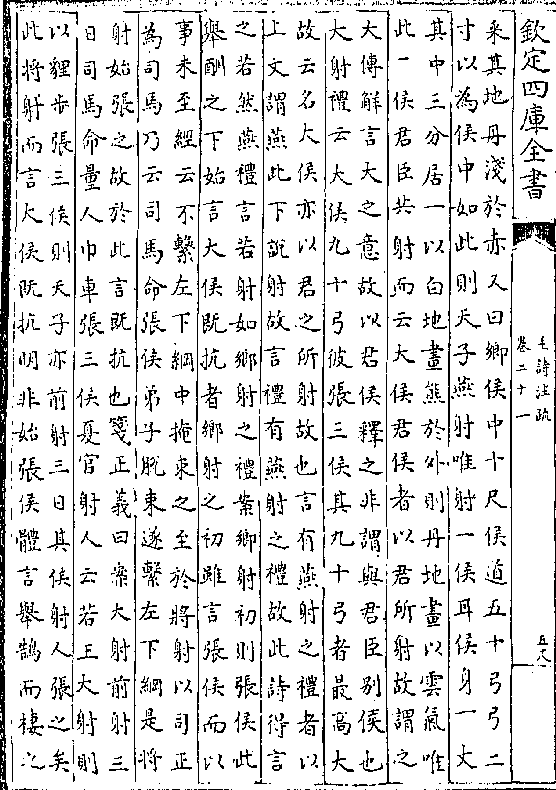 欽定四庫全書
毛詩注疏
卷二十一
五八
采其地丹淺於赤又曰鄉侯中十尺侯道五十弓弓二
寸以為侯中如此則天子燕射唯射一侯耳侯身一丈
其中三分居一以白地畫熊於外則丹地畫以雲氣唯
此一侯君臣共射而云大侯君侯者以君所射故謂之
大傳解言大之意故以君侯釋之非謂與君臣別侯也
大射禮云大侯九十弓彼張三侯其九十弓者最高大
故云名大侯亦以君之所射故也言有燕射之禮者以
上文謂燕此下説射故言禮有燕射之禮故此詩得言
之若然燕禮言若射如鄉射之禮案鄉射初則張侯此
舉酬之下始言大侯既抗者鄉射之初雖言張侯而以
事未至經云不繫左下綱中掩束之至於將射以司正
為司馬乃云司馬命張侯弟子脫束遂繫左下綱是將
射始張之故於此言既抗也箋正義曰案大射前射三
日司馬命量人巾車張三侯夏官射人云若王大射則
以貍步張三侯則天子亦前射三日其侯射人張之矣
此將射而言大侯既抗明非始張侯體言舉鵠而棲之